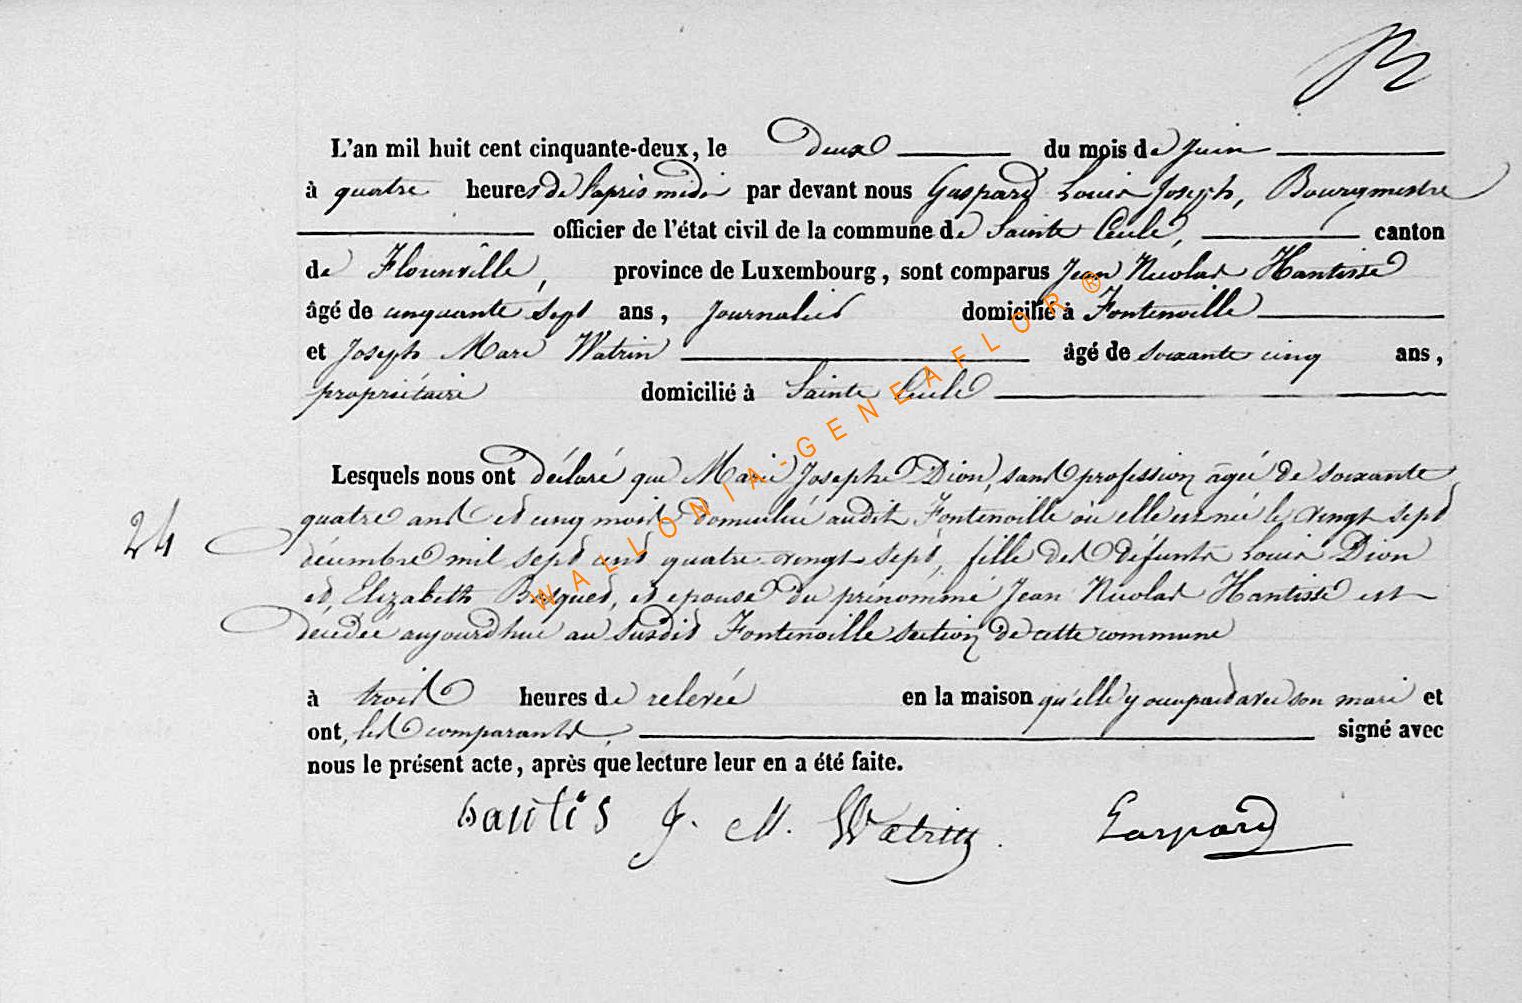 L'an mil huit cent cinquante-deux, le deux du mois de Juin
à quatre heures de l'après midi par devant nous Gaspard Louis Joseph, Bourgmestre
officier de l'état civil de la commune de Sainte Cécile, canton
de Florenville, province de Luxembourg, sont comparus Jean Nicolas Hantisse
âgé de cinquante sept ans, Journalier domicilié à Fontenoille
et Joseph Marc Watrin âgé de soixante cinq ans,
propriétaire domicilié à Sainte Cécile
Lesquels nous ont déclaré que Marie Josephe Dion, sans profession agée de soixante
24
quatre ans et cinq mois domiciliée audit Fontenoille où elle est née le vingt sept
décembre mil sept cent quatre-vingt-sept, fille des défunts Louis Dion
et Elizabeth, et epouse du prénommé Jean Nicolas Hantisse est
décédée aujourdhui au susdit Fontenoille section de cette commune
à trois heures de relevée en la maison qu'elle y occupait avec son mari et
ont, les comparants, signé avec
nous le présent acte, après que lecture leur en a été faite.
hantis J. M. Watrin. Gaspard
WALLONIA-GENEAFLOR®